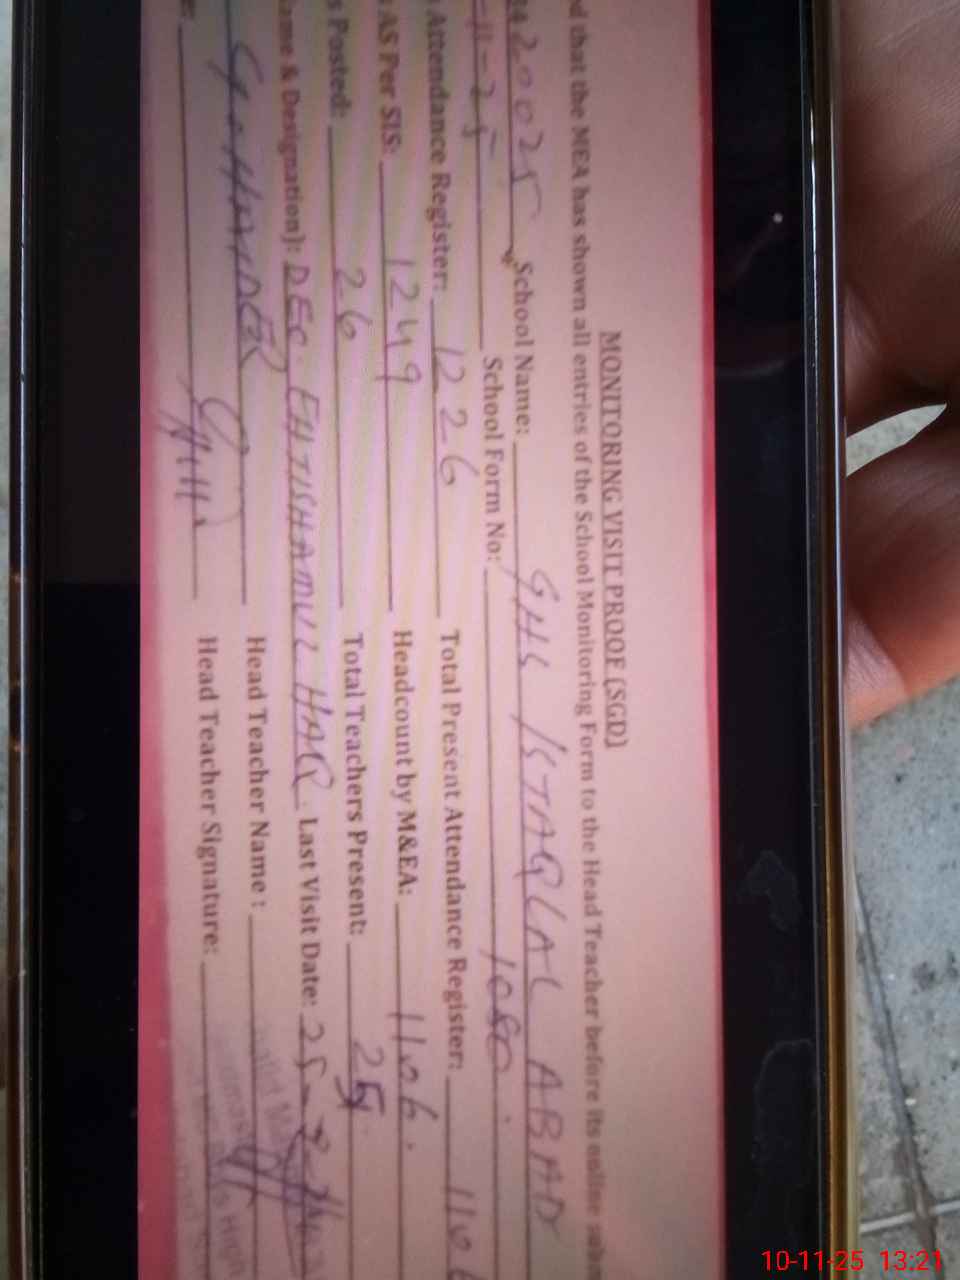 MONITORING VISIT PROOF (SGD)
d that the MEA has shown all entries of the School Monitoring Form to the Head Teacher before its online
20025 School Name: GHS ISTAQLAL ABAD
-11-25 School Form No: 1080
Attendance Register: 1226 Total Present Attendance Register: 110
AS Per SIS: 1249 Headcount by M&EA: 1106.
s Posted: 26 Total Teachers Present: 25
ame & Designation): DEO. EHTISHAMUL HAQ. Last Visit Date: 25-
Head Teacher Name:
Head Teacher Signature:
10-11-25 13:21